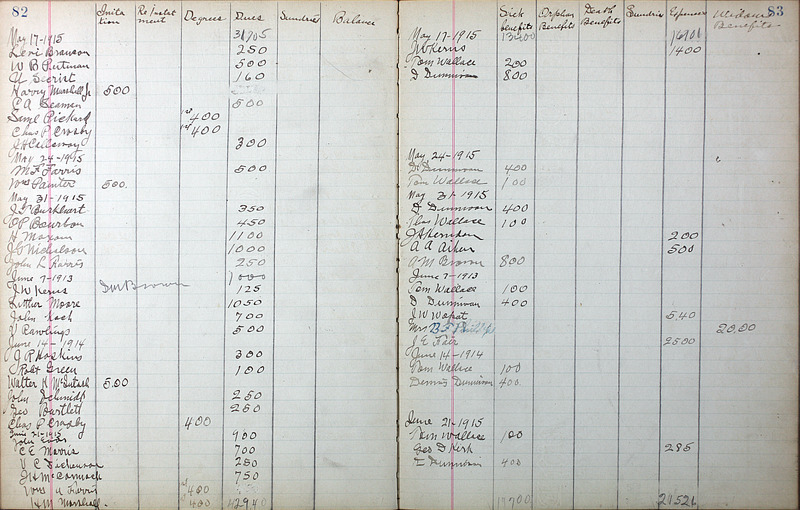 82
Initia tion Re/instat ment Degrees Dues Sundries Balance
May 17-1915 31705
Levi Branson 250
W B Putman 500
H Secrist 160
Harry Marshall Jr 500
C A Seamen 500
Saml Pickard 1st 400
Chas P Crosby 1st 400
J H Calloway 300
May 24-1915
M F Farris 500
Wm Painter 500.
May 31-1915
J T Burkhart 350
O P Bourbon 450
H Maxam 1100
J O Nicholson 1000
John L Harris 250
June 7-1913 1000
J W Kerns D M Brown 125
Luther Moore 1050
John Koch 700
J Rawlings 500
June 14-1914
J P Hoskins 300
Robt Green 100
Walter K McIntosh 500
John Schmidt 250
Geo Bartlett 250
Chas P Crosby 400
June 21-1915
John 900
C E Morris 700
V C Dickenson 250
J H McCormack 750
Wm Farris 400
H M Marshall. 400 42940
83
Sick benefits Orphan Benefits Death Benefits Sundries Expenses Widows Benefits
May 17-1915 13400 16701
J W Kerns 1400
Tom Wallace 200
D Dunnivan 800
May 24-1915
D Dunnivan 400
Tom Wallace 100
May 31-1915
D Dunnivan 400
Thos Wallace 100
J A Herndon 200
A A Aiken 500
A M Brown 800
June 7-1913
Tom Wallace 100
D Dunnivan 400
J W Wopat 540
Mrs B F Phillips 2000
J E Fair 2500
June 14-1914
Tom Wallace 100
Dennis Dunnivan 400.
June 21-1915
Tom Wallace 100
Geo D Kirk 285
D Dunnivan 400
17700 21526